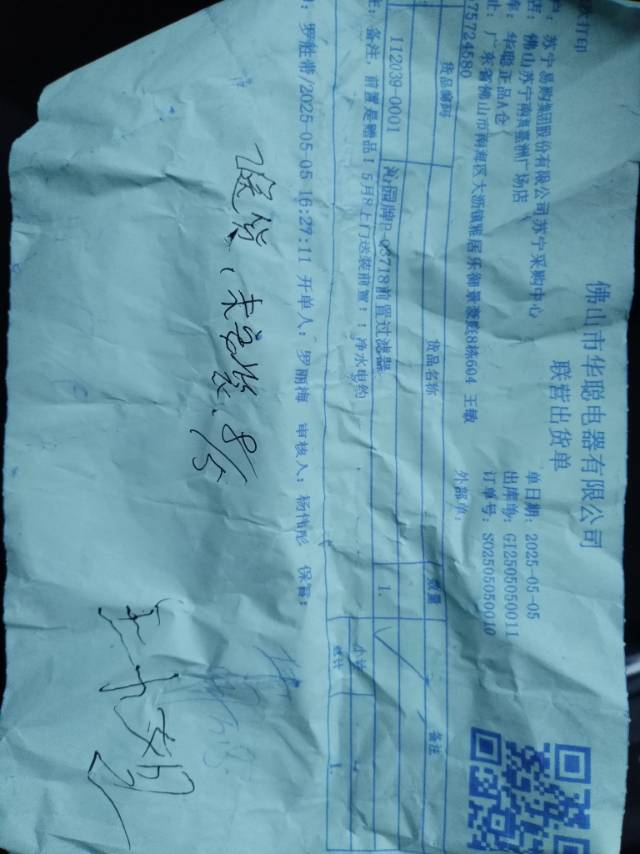 佛山市华聪电器有限公司
联营出货单
次打印
苏宁易购集团股份有限公司苏宁采购中心
单日期: 2025-05-05
店: 佛山苏宁南海
广场店
出库单: GI2505050011
库: 华聪正品A仓
订单号: SO2505050010
址: 广东省佛山市南海区大沥镇雅居乐御景豪庭8栋604 王敏
75724580
外部单:
货品编码 货品名称 数量 备注
112039-0001 沁园牌 03718前置过滤器 1.
小计
注: 备注, 前置是赠品! 5月8上门送装前置: : 净水电约
总计 1.
: 罗胜带/2025-05-05 16:27:11 开单人: 罗丽梅 审核人: 杨伟彤 保管:
退货, 未安装. 8/5